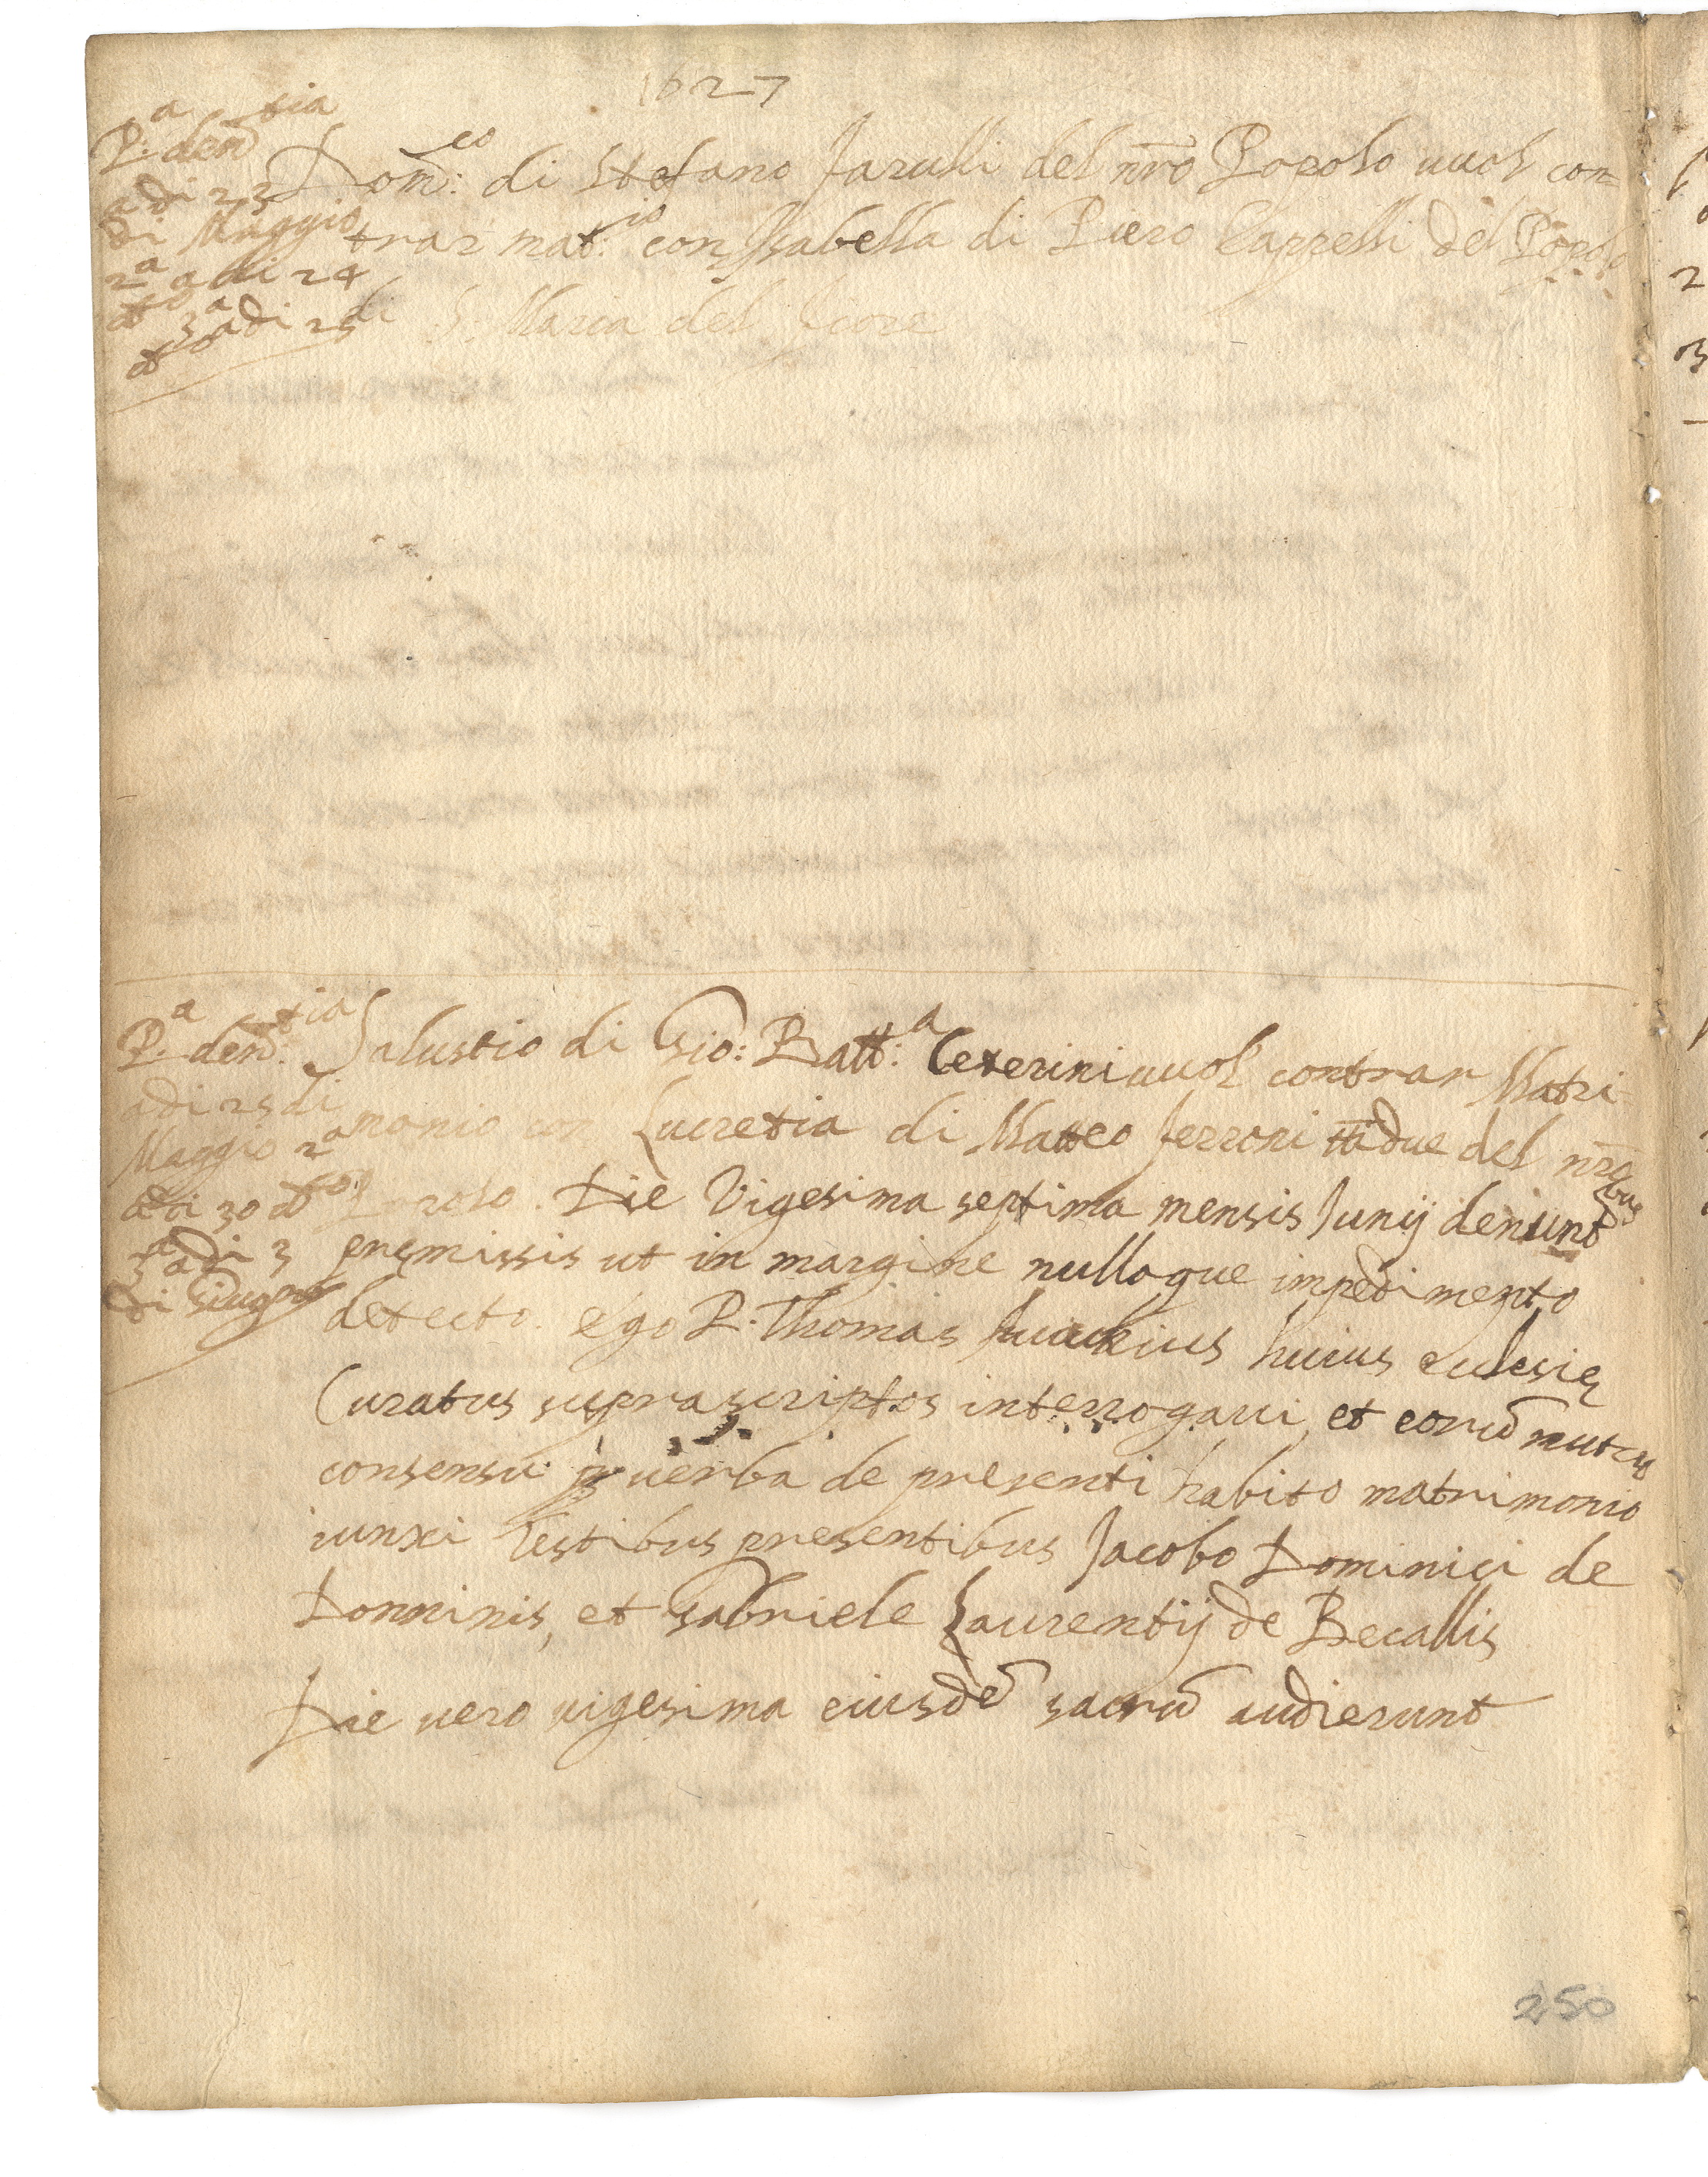 1627
P.ª den.tia
adi 23
di Maggio
2ª a di 24
dto 3ª adi 25
dto
Dom.co di Stefano Jarulli del nr̃o Popolo uuol con=
trar mat.io con Isabella di Piero Cappelli del Popolo
di S. Maria del fiore
P.ª den.tia
adi 25 di
Maggio 2ª
adi 30 dto
3ª adi 3
di Giugno
Salustio di Gio: Batt.ª Ceterini uuol contrar Matri
monio con Lucretia di Matteo ferroni tt̃idue del nr̃o
Popolo. Die Vigesima septima mensis Junij denunt.bus
premissis ut in margine nulloque impedimento
detecto. ego P. Thomas huius eclesie
Curatus suprascriptos interrogaui, et eorũ mutuo
consensu p uerba de presenti habito matrimonio
iunxi Testibus presentibus Jacobo Dominici de
Donninis, et Gabriele Laurentij de Becallis
Die uero uigesima eiusdẽ sacrũ audierunt
250